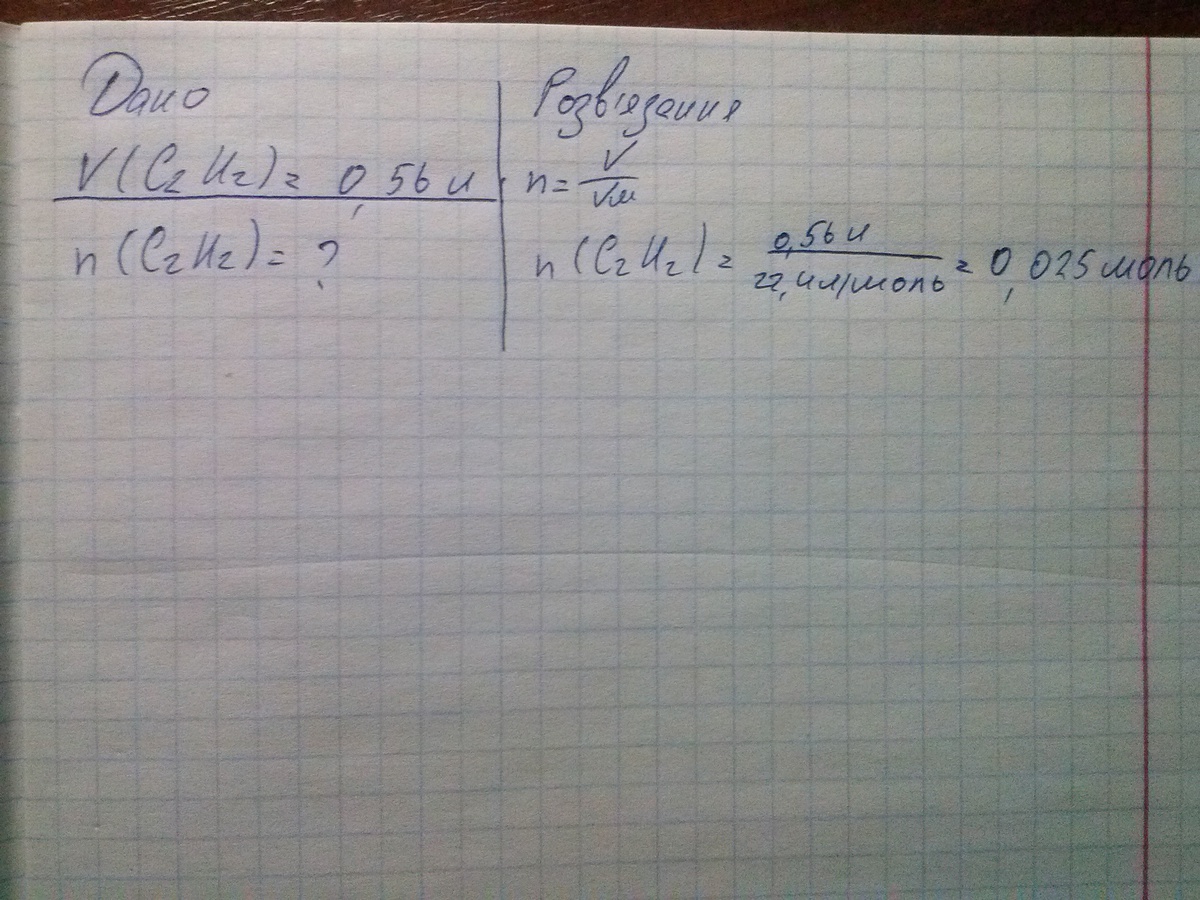 Дано
V(C₂H₂) = 0,56 л
n(C₂H₂) = ?
Розв'язання
n = V/Vм
n(C₂H₂) = 0,56 л/22,4 л/моль = 0,025 моль